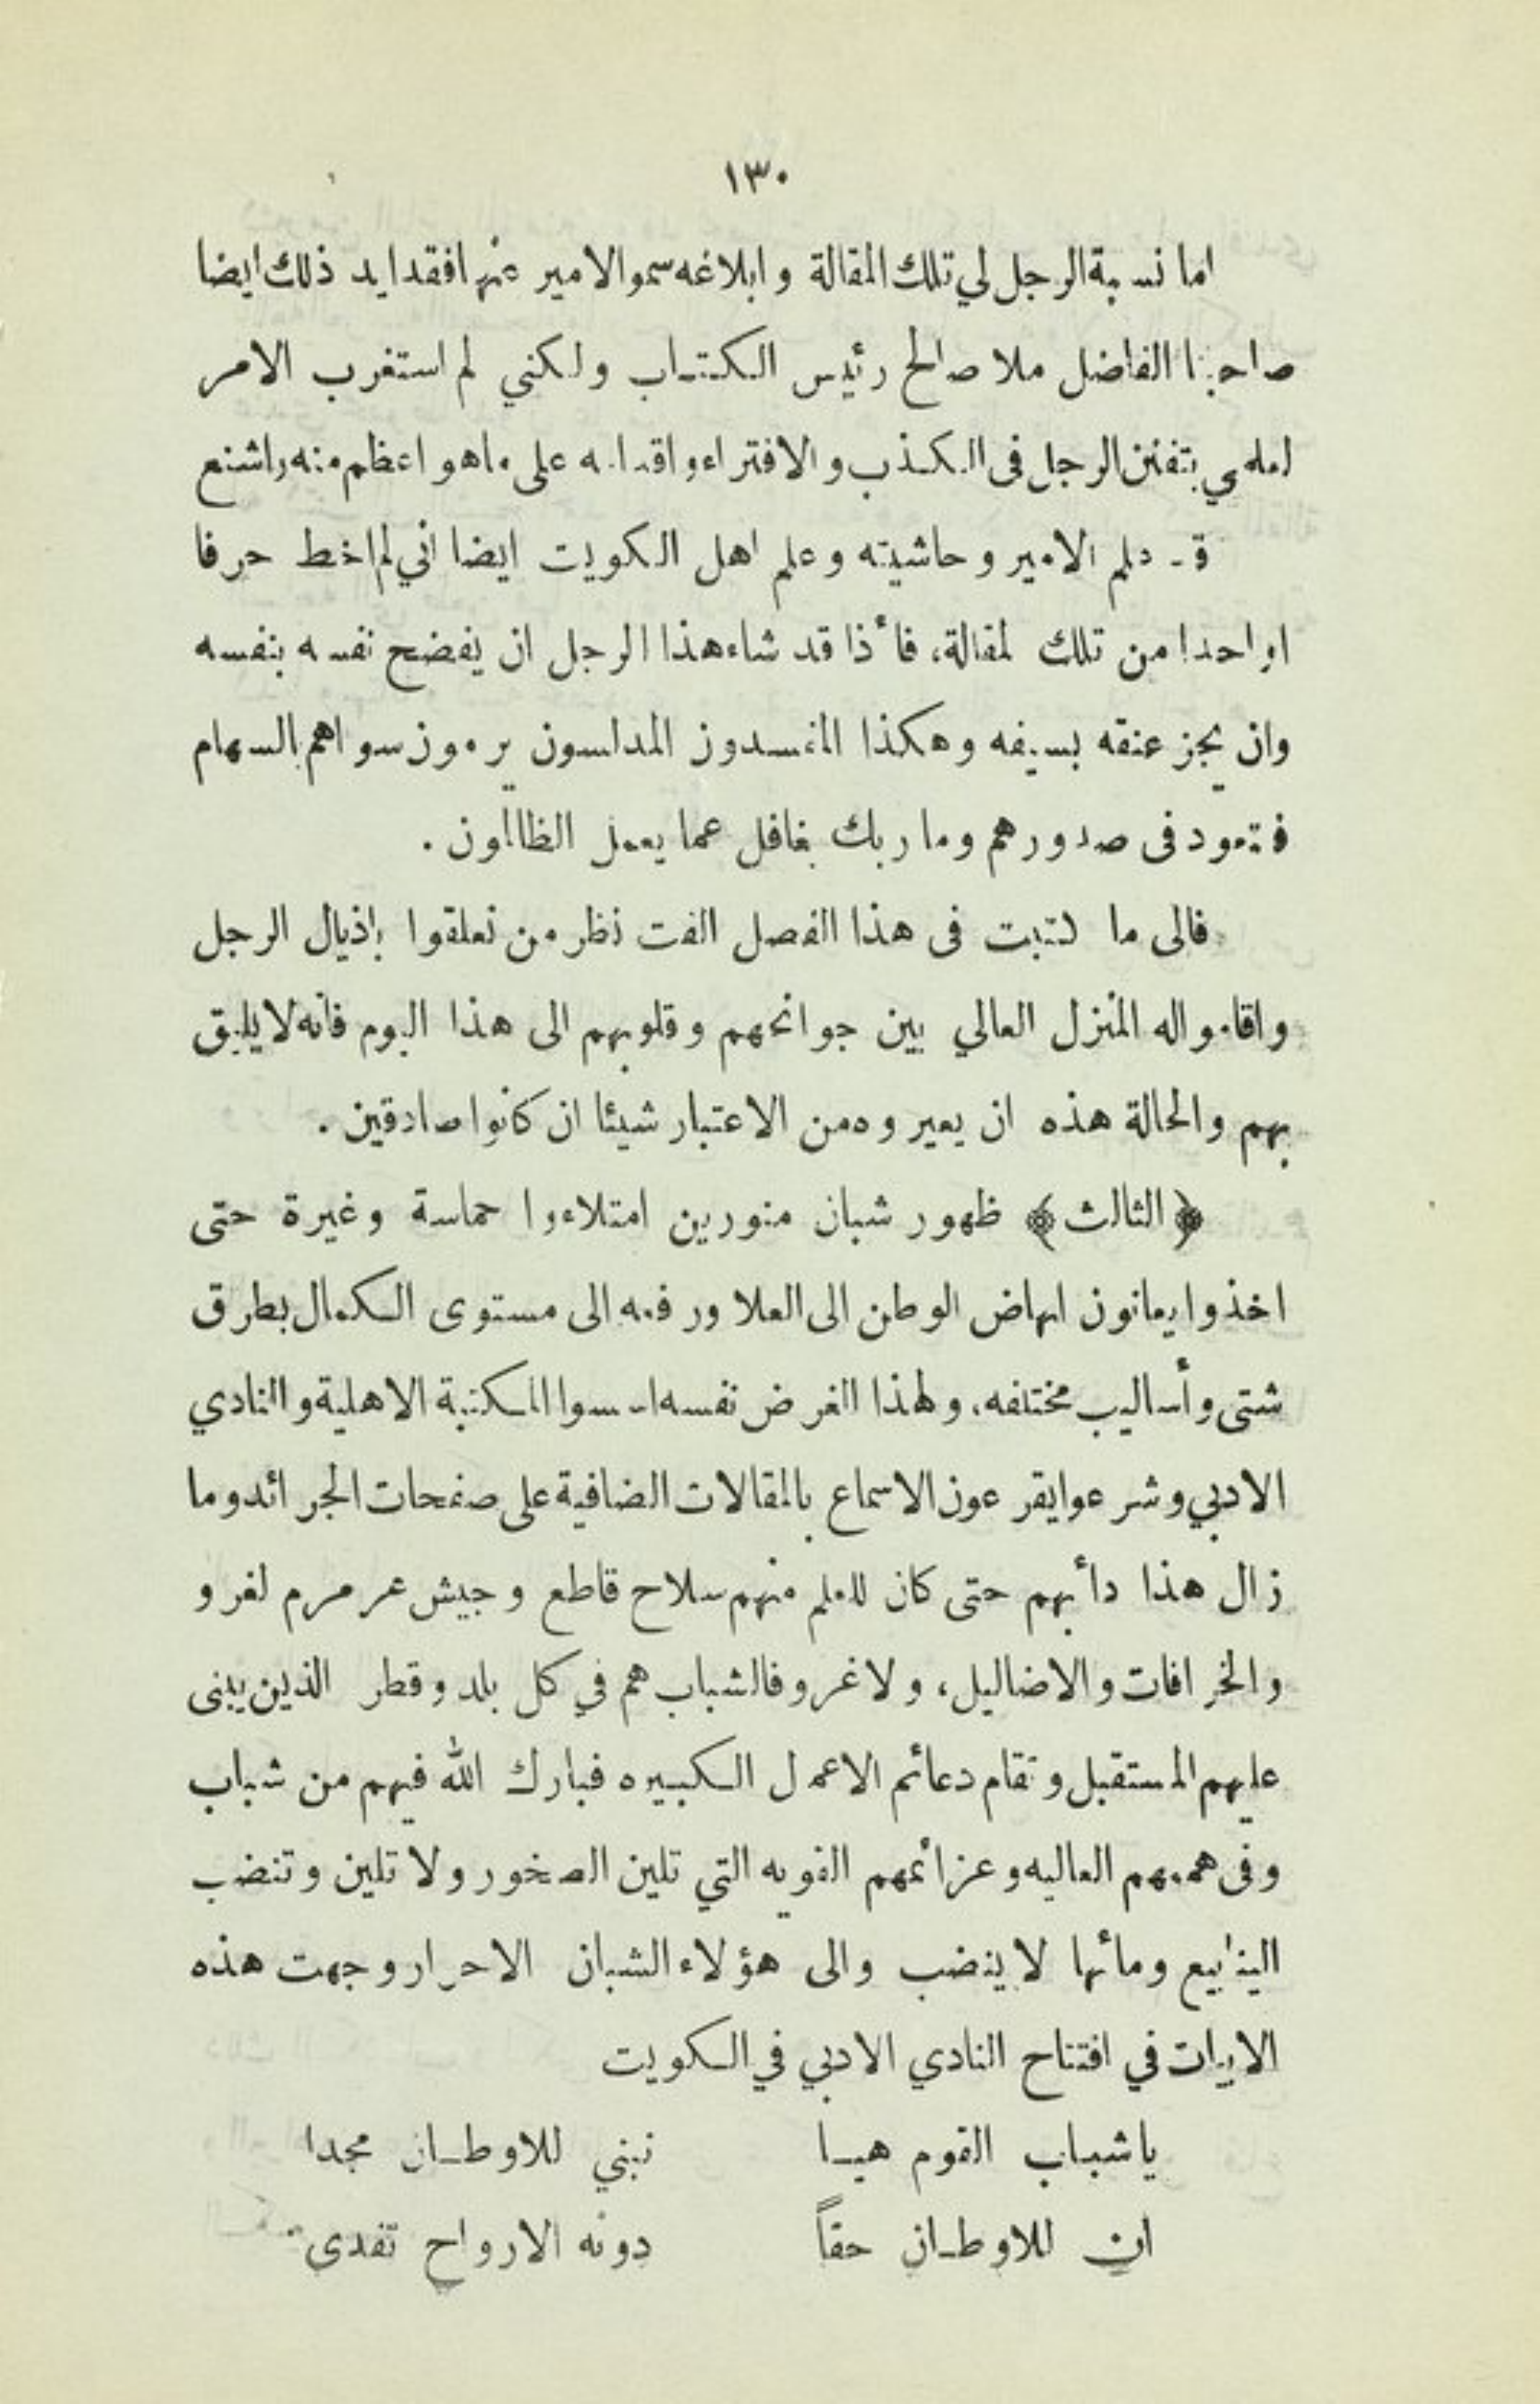 ١٣٠
اما نسبة الرجل لي تلك المقالة وابلاغه سمو الامير عنها فقد ايد ذلك ايضا
صاحبنا الفاضل ملا صالح رئيس الكتاب ولكني لم استغرب الامر
لعلمي بتفنن الرجل فى الكذب والافتراء واقدامه على ماهو اعظم منه واشنع
قد علم الامير وحاشيته وعلم اهل الكويت ايضا اني لم اخط حرفا
واحدا من تلك المقالة، فأذا قد شاء هذا الرجل ان يفضح نفسه بنفسه
وان يجز عنقه بسيفه وهكذا المفسدون المدلسون يرمون سواهم بالسهام
فتعود فى صدورهم وما ربك بغافل عما يعمل الظالمون .
فالى ما كتبت فى هذا الفصل الفت نظر من تعلقوا باذيال الرجل
واقاموا له المنزل العالي بين جوانحهم وقلوبهم الى هذا اليوم فانه لا يليق
بهم والحالة هذه ان يعيروه من الاعتبار شيئا ان كانوا صادقين .
﴿الثالث﴾ ظهور شبان منورين امتلاءوا حماسة وغيرة حتى
اخذوا يعانون انهاض الوطن الى العلا ورفعه الى مستوى الكمال بطرق
شتى وأساليب مختلفه، ولهذا الغرض نفسه اسسوا المكتبة الاهلية والنادي
الادبي وشرعوا يقرعون الاسماع بالمقالات الضافية على صفحات الجرائد وما
زال هذا دأبهم حتى كان للعلم منهم سلاح قاطع وجيش عرمرم لغرو
والخرافات والاضاليل، ولا غرو فالشباب هم في كل بلد وقطر الذين يبنى
عليهم المستقبل وتقام دعائم الاعمال الكبيره فبارك الله فيهم من شباب
وفى هممهم العاليه وعزائمهم القويه التي تلين الصخور ولا تلين وتنضب
الينابيع ومائها لا ينضب والى هؤلاء الشبان الاحرار وجهت هذه
الابيات في افتتاح النادي الادبي في الكويت
يا شباب القوم هيا نبني للاوطان مجدا
ان للاوطان حقاً دونه الارواح تفدى